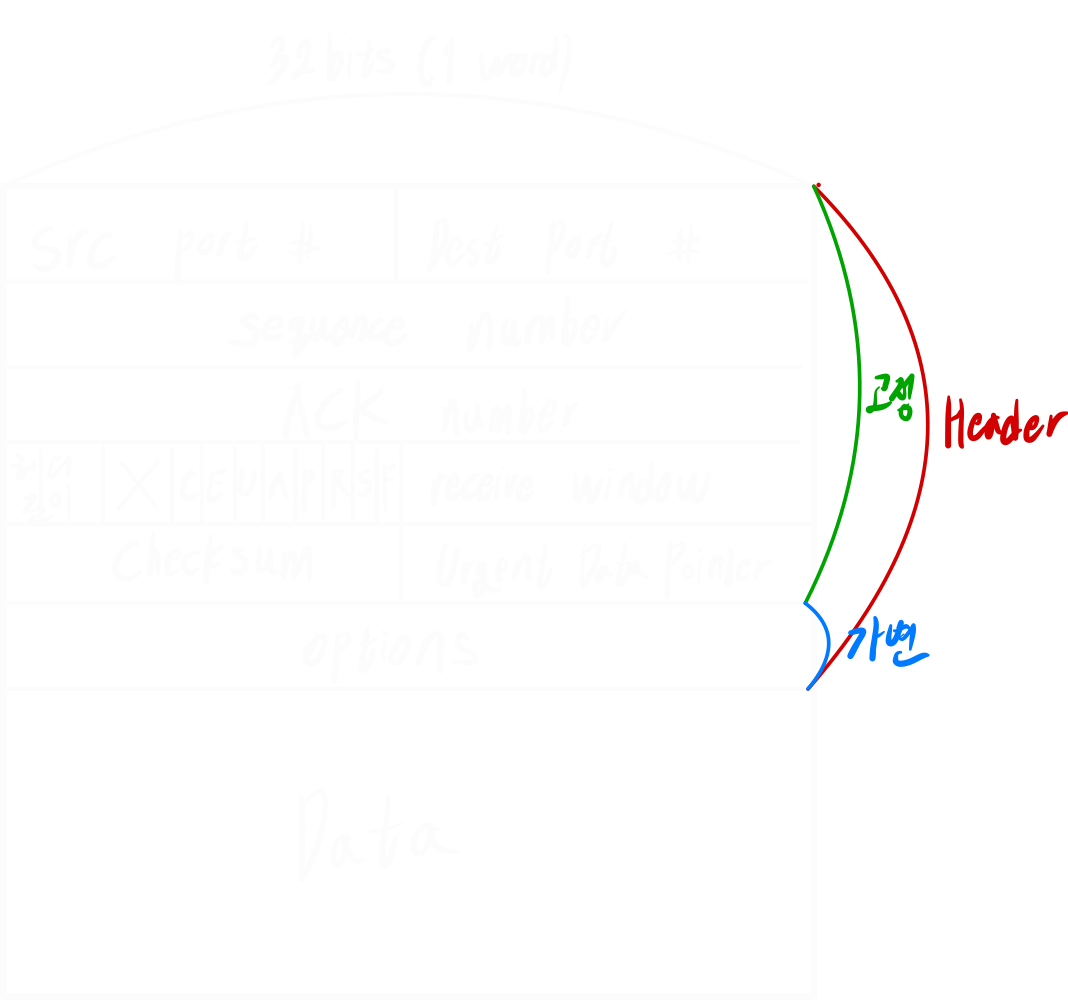 32 bits (1 word)
src port # Dest Port #
sequence number
ACK number
헤더 길이 X C E U A P R S F receive window
Checksum Urgent Data Pointer
options
Data
고정
Header
가변